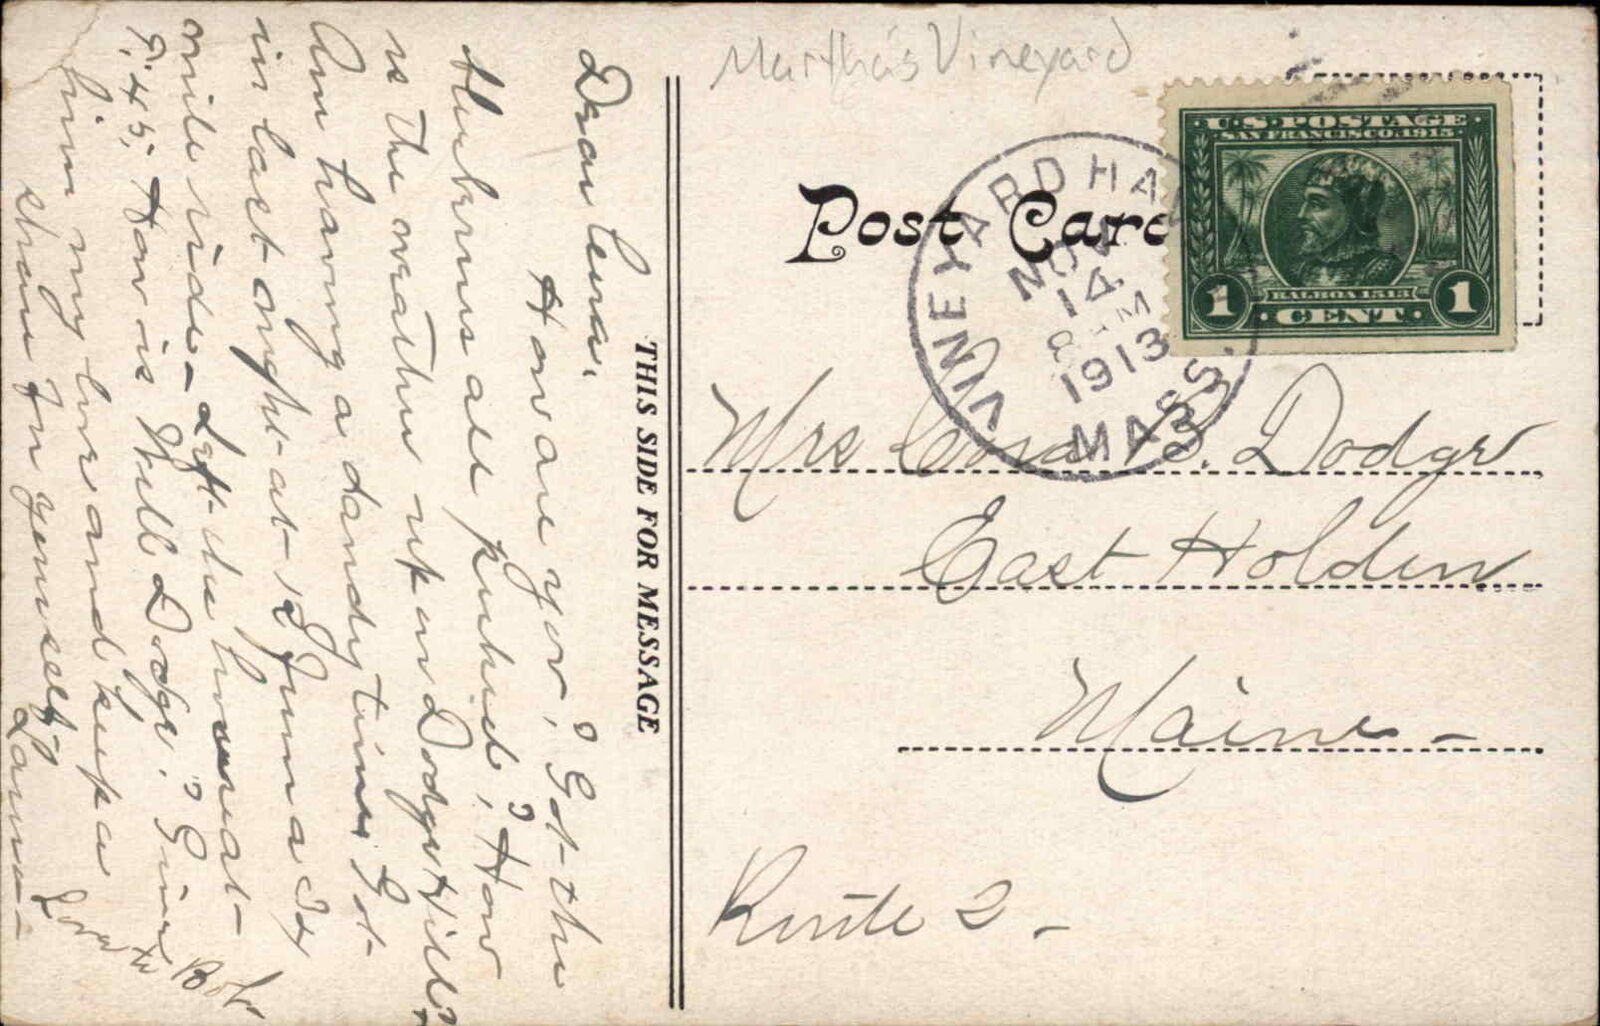 Martha's Vineyard
Post Card
VINEYARD HAVEN
NOV
14
M
1913
MASS.
U.S. POSTAGE
SAN FRANCISCO 1915
BALBOA 1513
1 CENT 1
THIS SIDE FOR MESSAGE
Mrs Cena B. Dodge
East Holden
Maine -
Route 2 -
Dear Cena,
How are you, ? Got the
all picked, ? How
is the weather up on Dodge Hill?
Am having a dandy time Got
in last night at 12 from a 24
mile ride - Left the house at
7.45, How is Will Dodge. ? Give
him my love and keep a
share for yourself
Laura -
Love to Bob